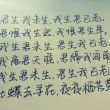 君生我未生,我生君已老
君恨我生迟,我恨君生早
君生我未生,我生君已老
我离君天涯,君隔我海角
我生君未生,君生我已老
化蝶去寻花,夜夜栖芳草